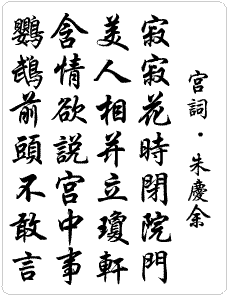 宮詞·朱慶余
寂寂花時閉院門
美人相并立瓊軒
含情欲説宮中事
鸚鵡前頭不敢言